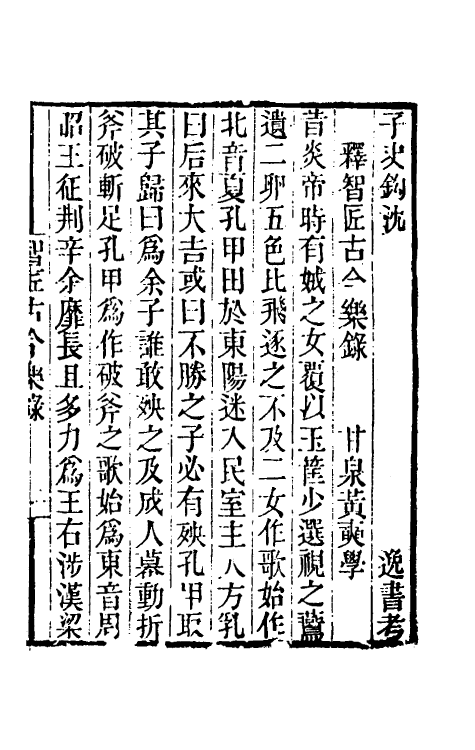 子史鈎沈 逸書考
釋智匠古今樂錄 甘泉黃奭學
昔炎帝時有娀之女覆以玉筐少選視之鷰
遺二卵五色比飛逐之不及二女作歌始作
北音夏孔甲田於東陽迷入民室主人方乳
曰后來大吉或曰不勝之子必有殃孔甲取
其子歸曰爲余子誰敢殃之及成人幕動折
斧破斬足孔甲爲作破斧之歌始爲東音周
昭王征荆辛余靡長且多力爲王右涉漢梁
智匠古今樂錄 一